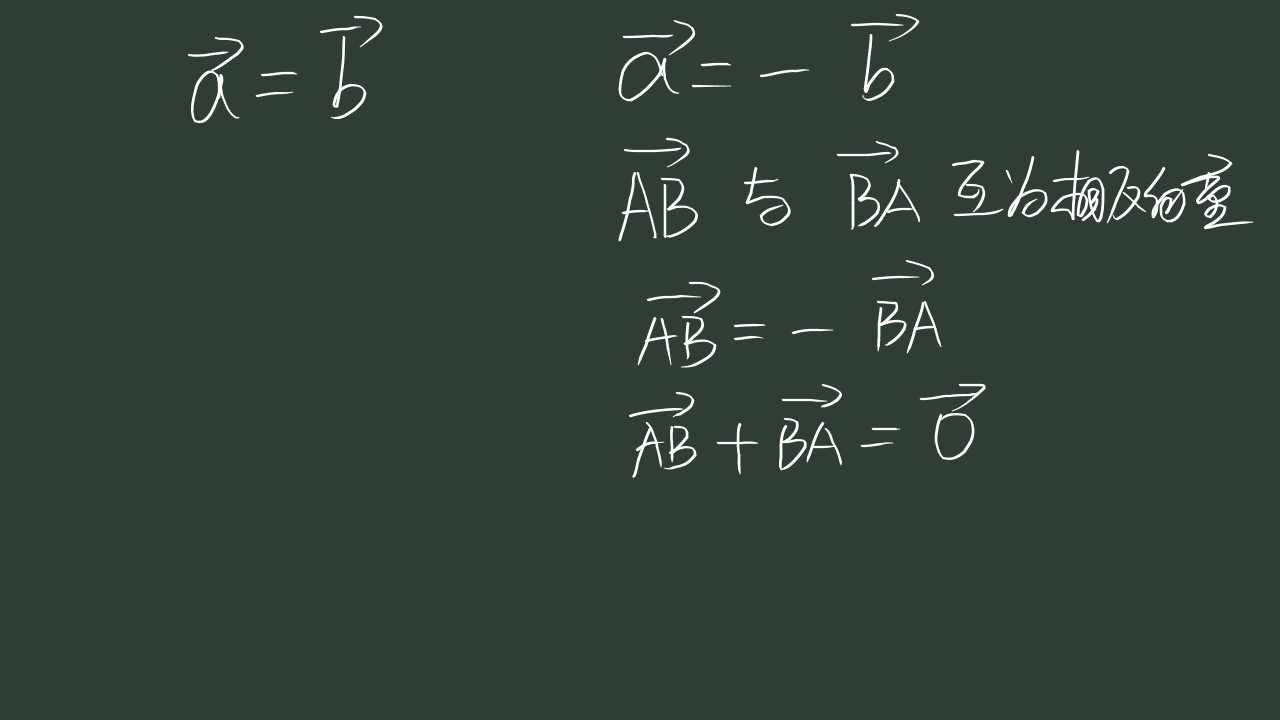 $\vec{a} = \vec{b}$
$\vec{a} = -\vec{b}$
$\overrightarrow{AB}$ 与 $\overrightarrow{BA}$ 互为相反向量
$\overrightarrow{AB} = -\overrightarrow{BA}$
$\overrightarrow{AB} + \overrightarrow{BA} = \vec{0}$